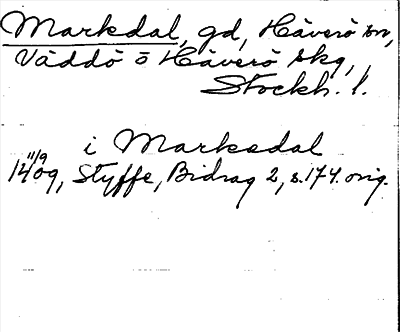 Markdal, gd, Häverö sn,
Väddö o Häverö skg,
Stockh. l.
i Marksdal
11/9
1409, Styffe, Bidrag 2, s. 174. orig.